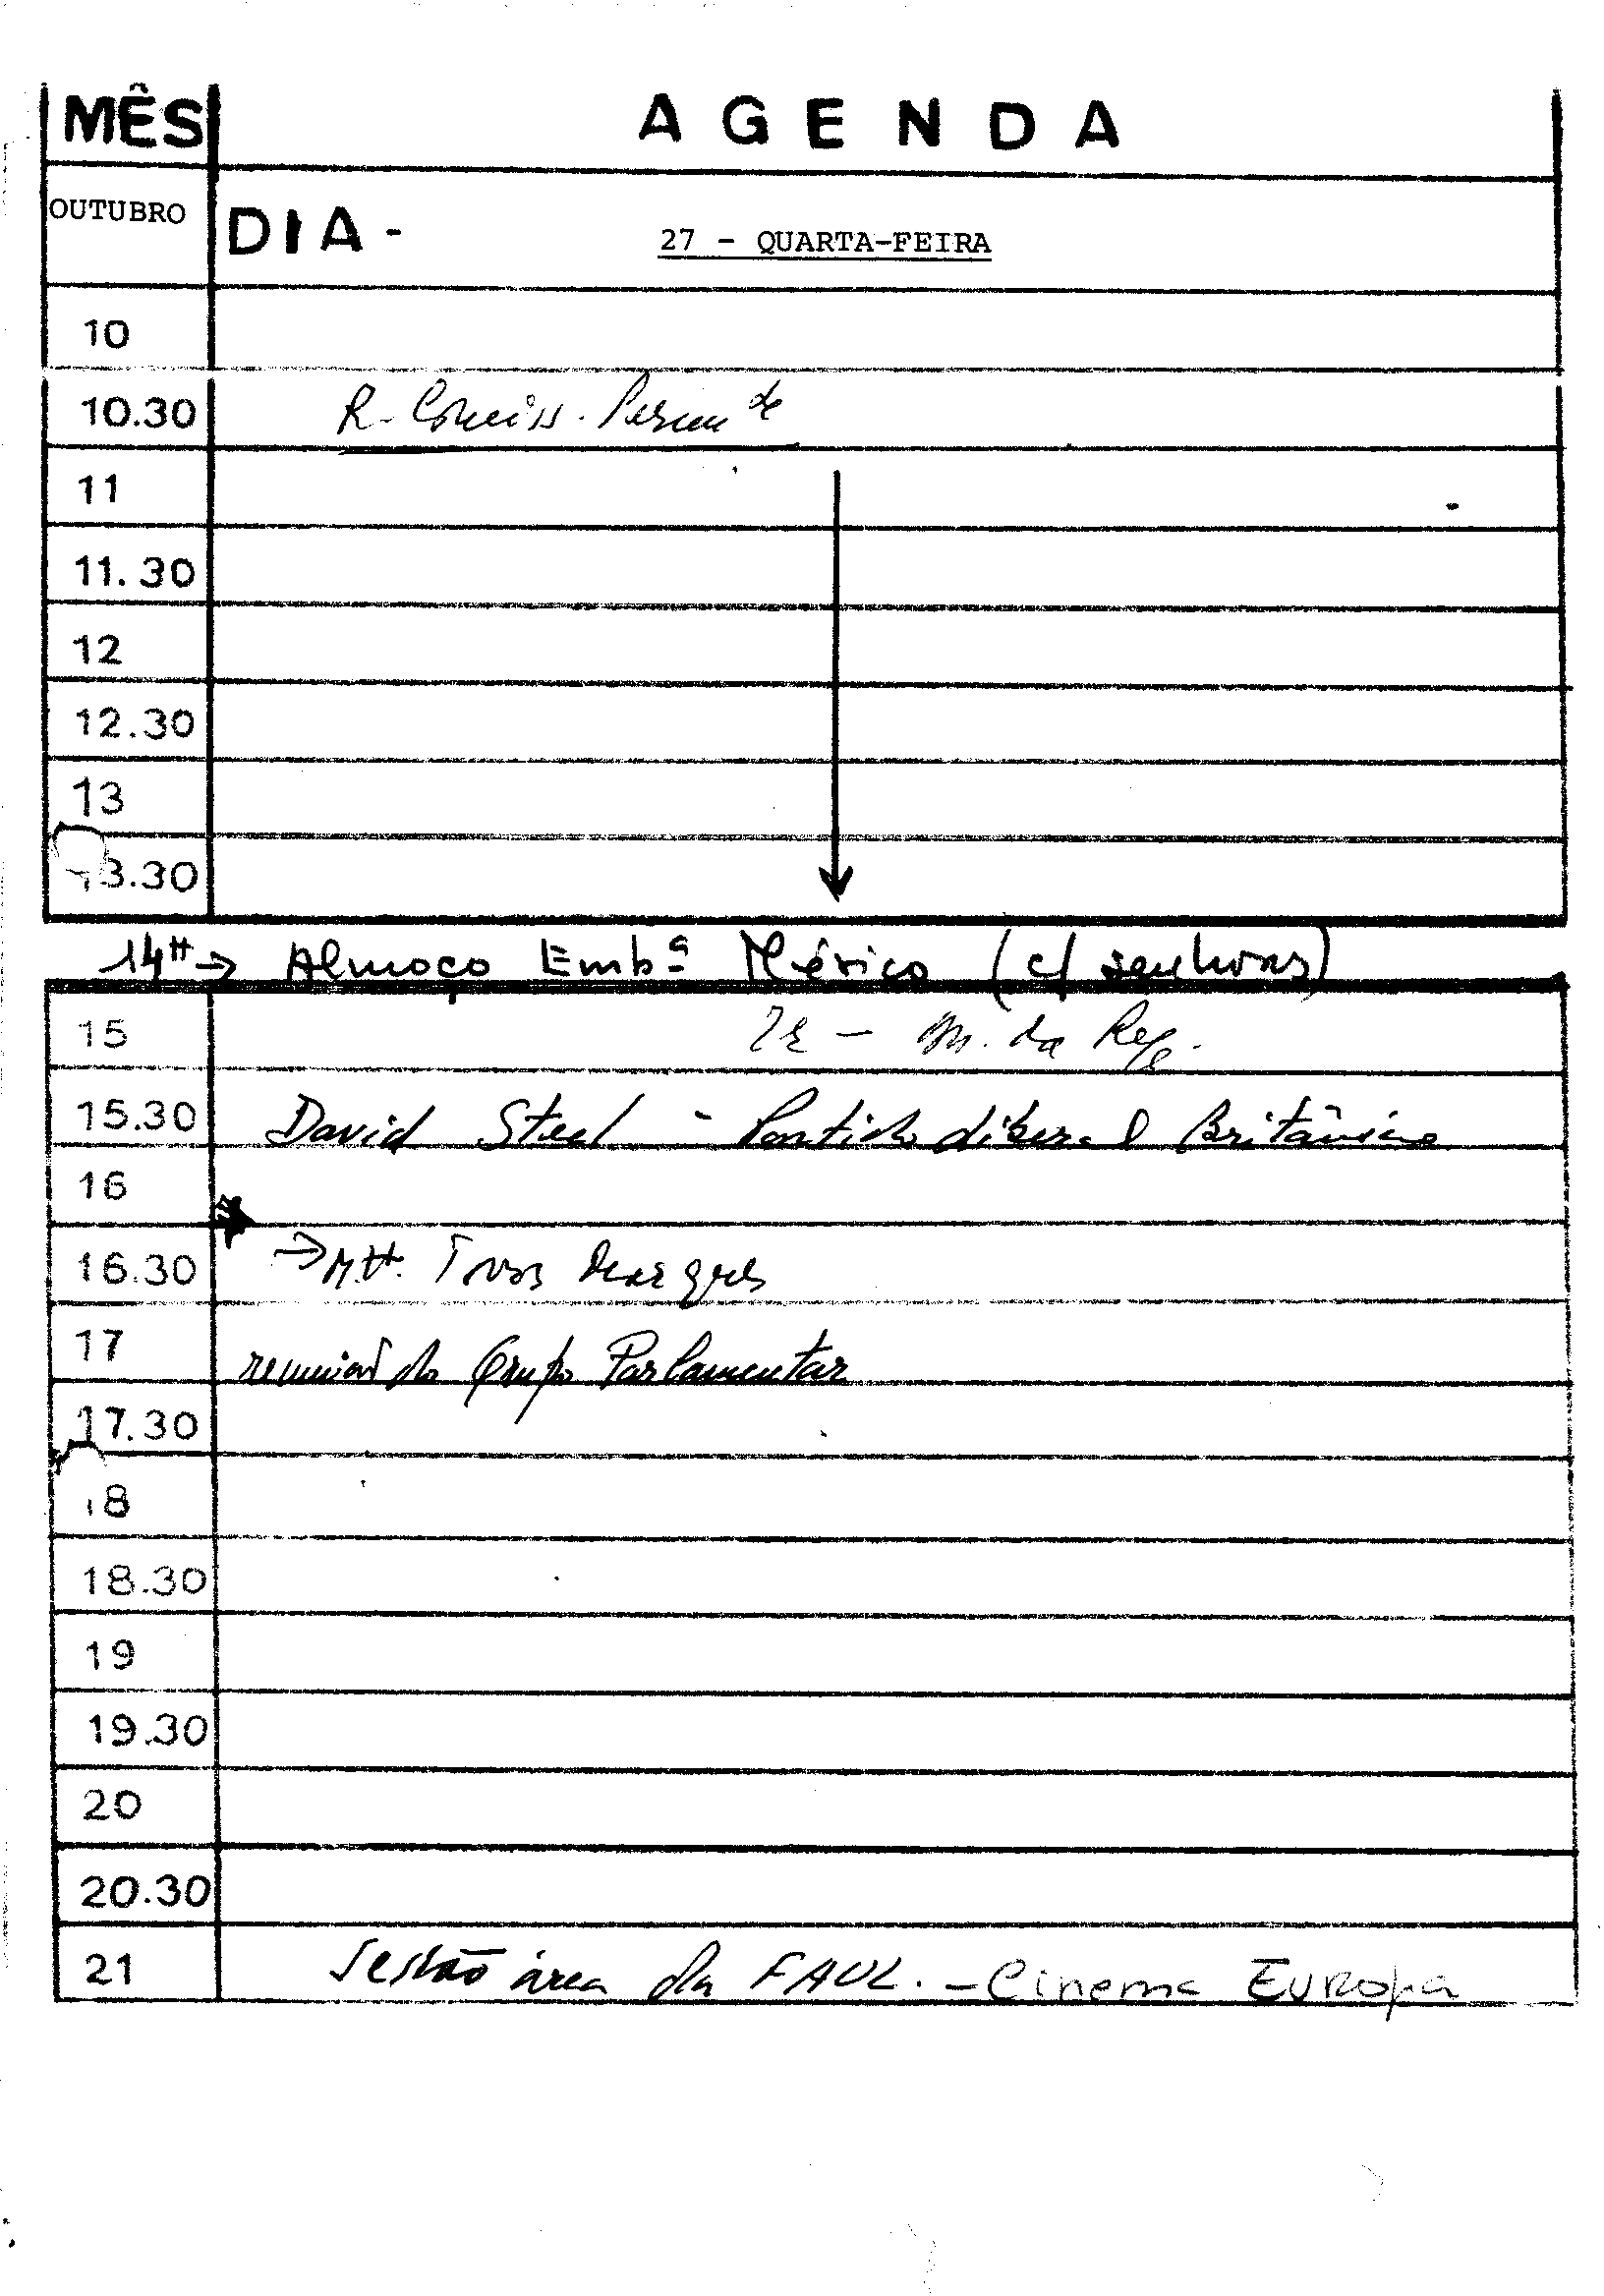 MÊS AGENDA
OUTUBRO DIA - 27 - QUARTA-FEIRA
10
10.30 R. Comiss. Perm te
11
11.30
12
12.30
13
13.30
14H → Almoço Embª México (c/ senhoras)
15 - M. da Rep.
15.30 David Steel - Partido Liberal Britânico
16
16.30 → M.H. Tavares Marques
17 reunião do Grupo Parlamentar
17.30
18
18.30
19
19.30
20
20.30
21 Sessão área da FAUL. - Cinema Europa